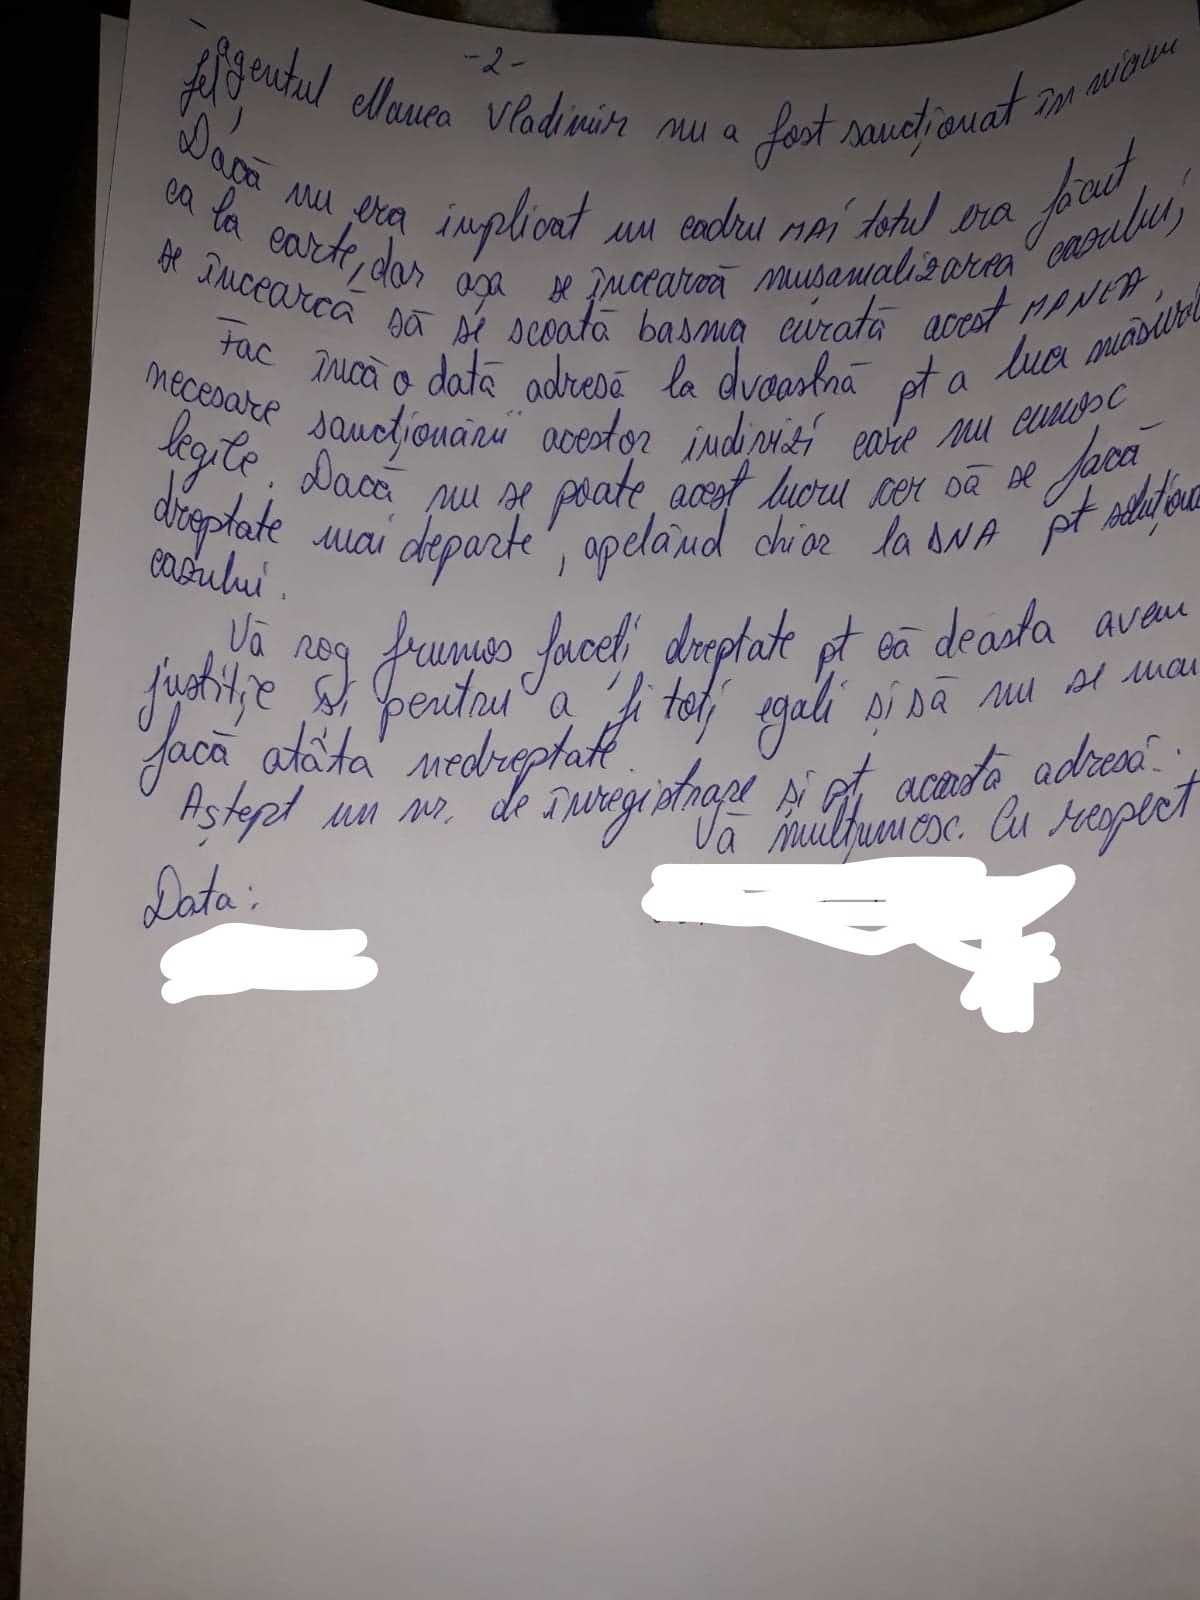 -2-
- agentul Manea Vladimir nu a fost sancționat în niciun
fel;
Dacă nu era implicat un cadru MAI totul era făcut
ca la carte, dar așa se încearcă musamalizarea cazului,
se încearcă să se scoată basma curată acest MANEA.
Fac încă o dată adresă la dvoastră pt a lua măsurile
necesare sancționării acestor indivizi care nu cunosc
legile. Dacă nu se poate acest lucru cer să se facă
dreptate mai departe, apelând chiar la DNA pt
cazului.
Vă rog frumos faceți dreptate pt că deasta avem
justiție și pentru a fi toți egali și să nu se mai
facă atâta nedreptate.
Aștept un nr. de înregistrare și pt această adresă.
Vă mulțumesc. Cu respect
Data: